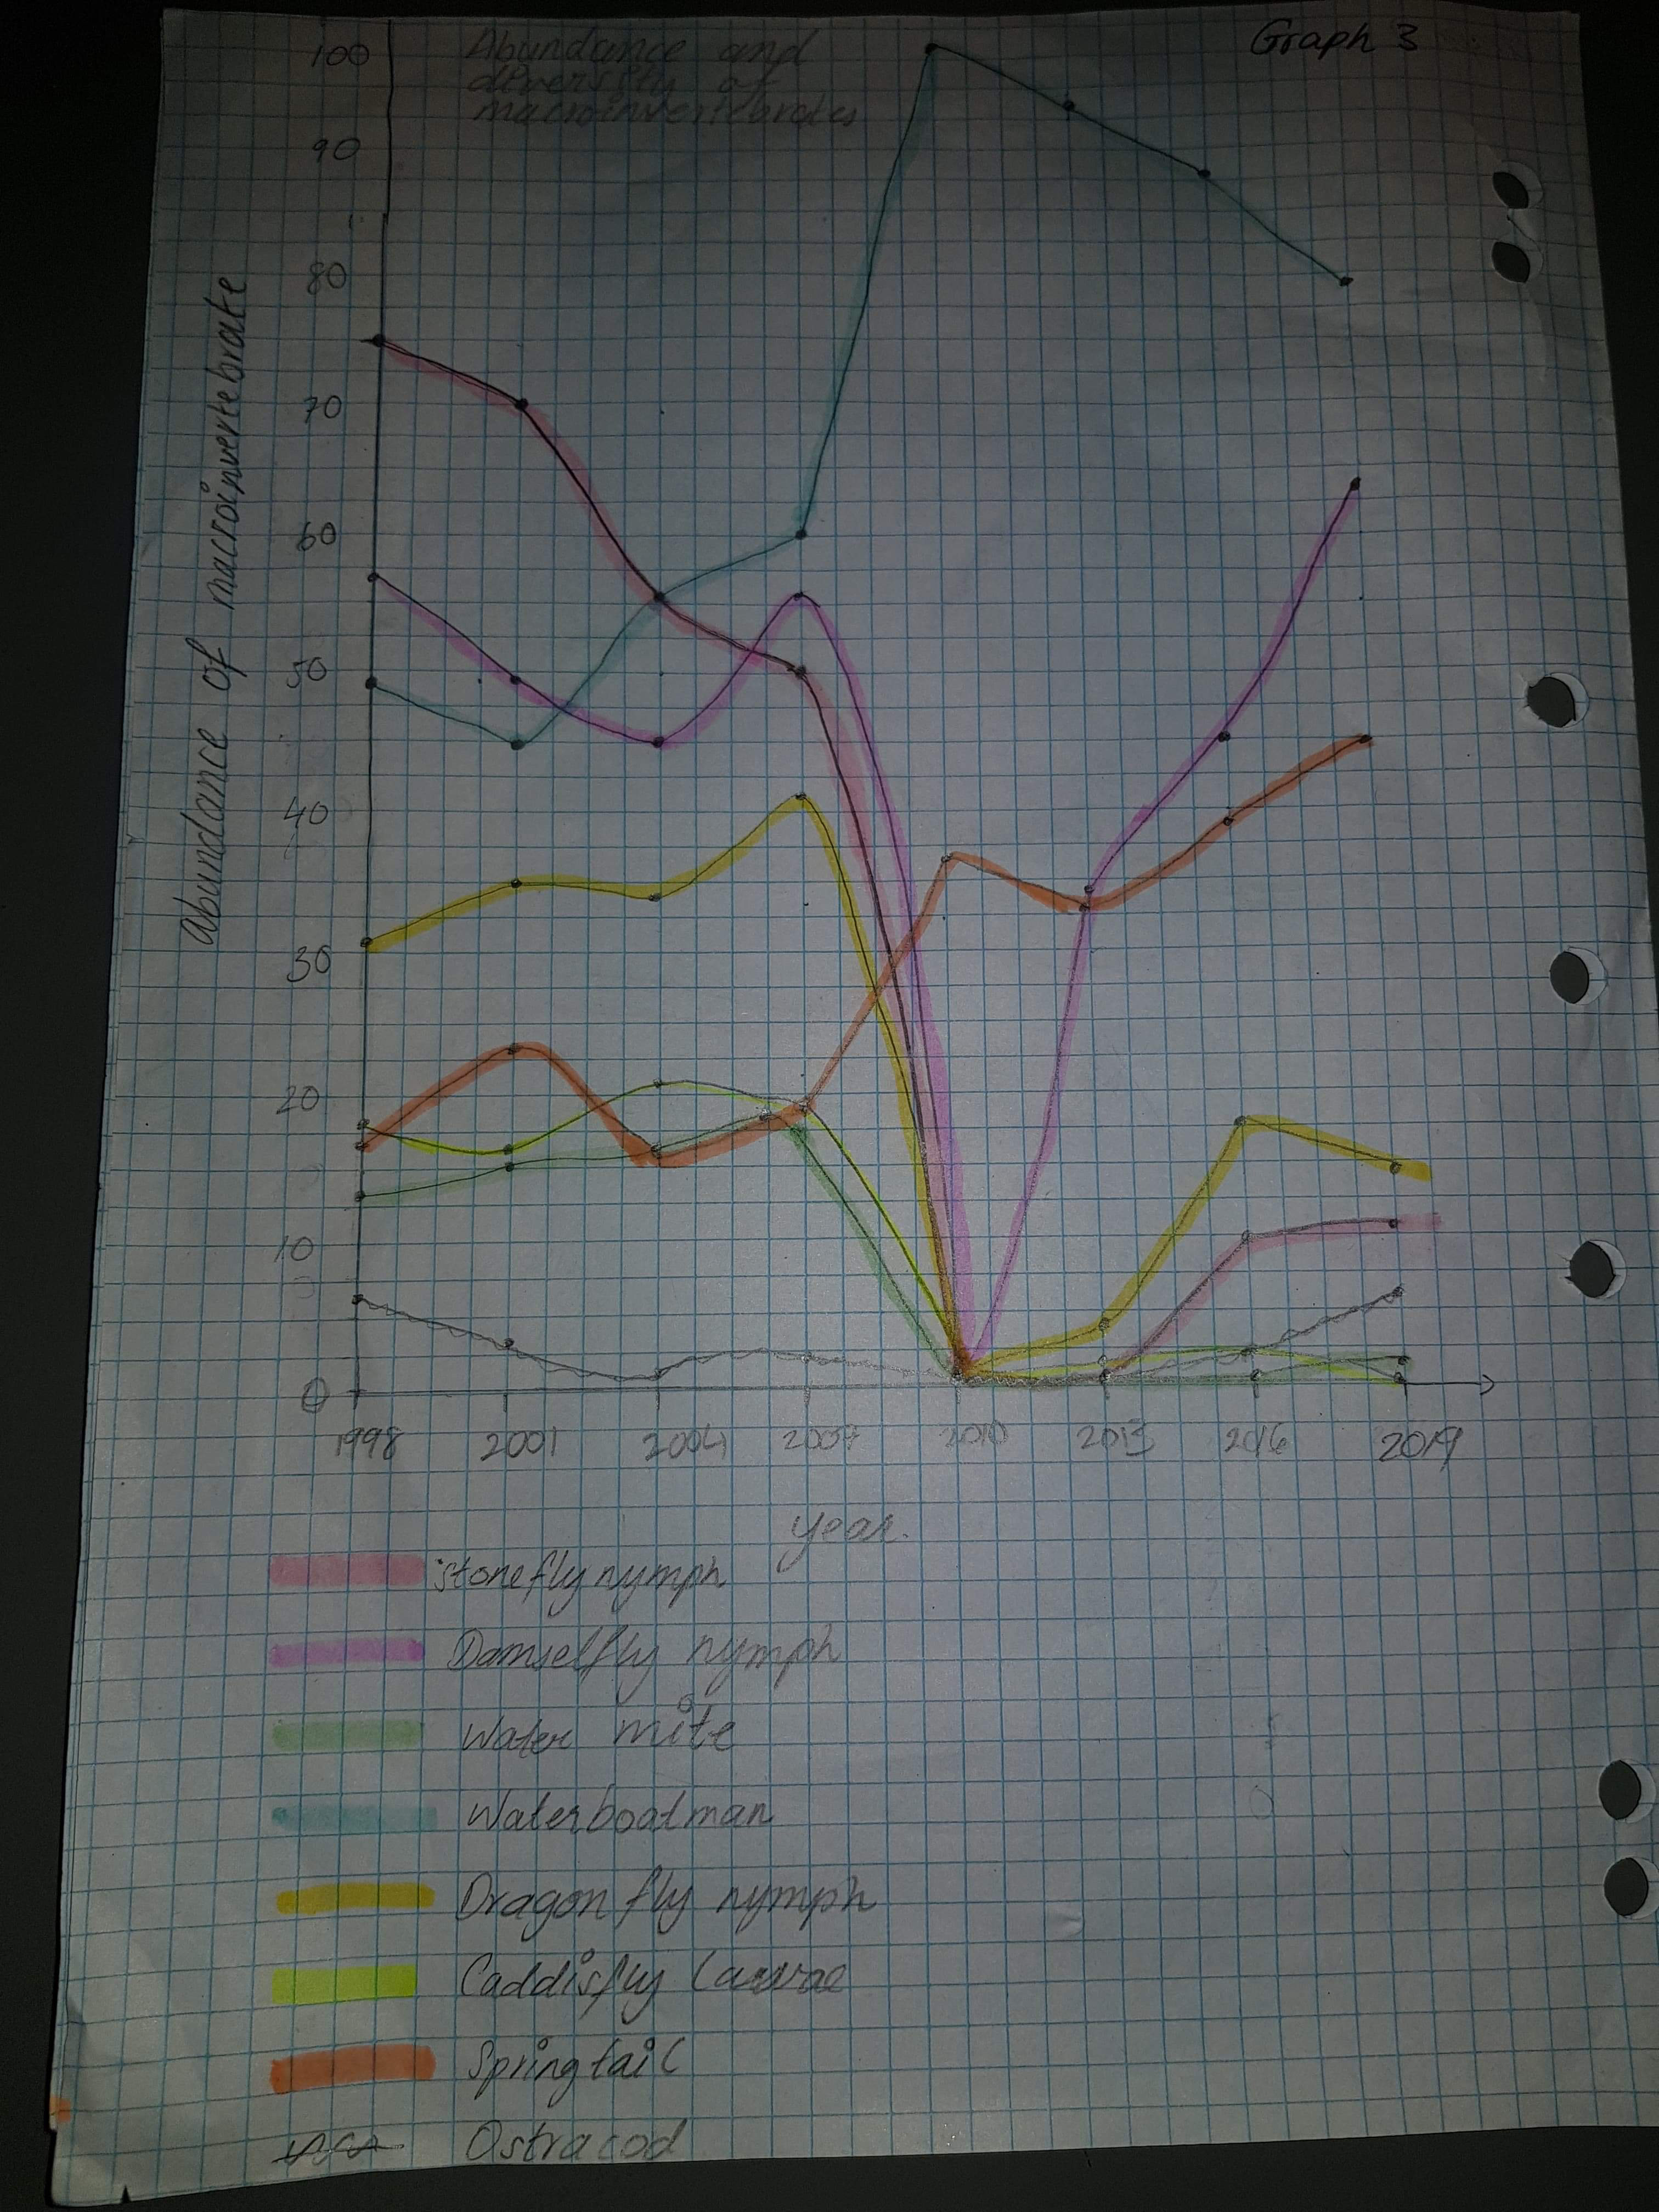 Graph 3
Abundance and
diversity of
macroinvertebrates
Abundance of macroinvertebrate
100
90
80
70
60
50
40
30
20
10
0
1998 2001 2004 2007 2010 2013 2016 2019
year.
stonefly nymph
Damselfly nymph
Water mite
Waterboatman
Dragon fly nymph
Caddisfly Larvae
Springtail
Ostracod